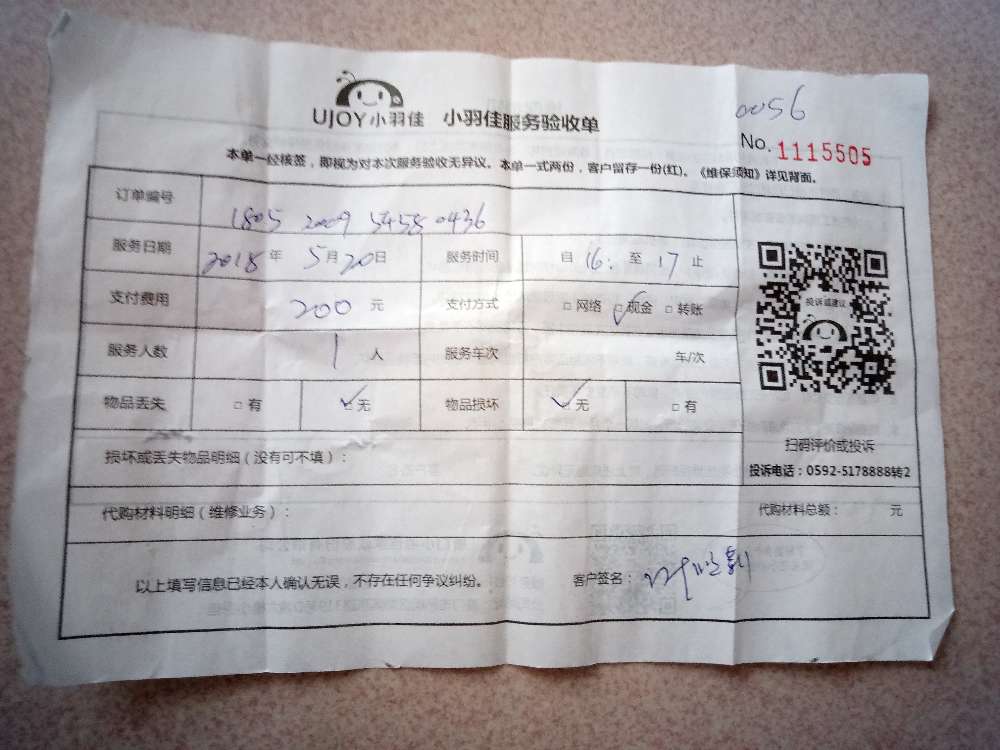 UJOY小羽佳 小羽佳服务验收单
0056
No. 1115505
本单一经核签，即视为对本次服务验收无异议。本单一式两份，客户留存一份(红)。《维保须知》详见背面。
订单编号 1805 2009 5458 0436
服务日期 2018年 5月20日 服务时间 自 16: 至 17 止
支付费用 200 元 支付方式 □ 网络 □ 现金 □ 转账
服务人数 1 人 服务车次 车/次
物品丢失 □ 有 □ 无 物品损坏 □ 无 □ 有
投诉或建议
扫码评价或投诉
投诉电话：0592-5178888转2
损坏或丢失物品明细（没有可不填）：
代购材料明细（维修业务）： 代购材料总额： 元
以上填写信息已经本人确认无误，不存在任何争议纠纷。 客户签名：